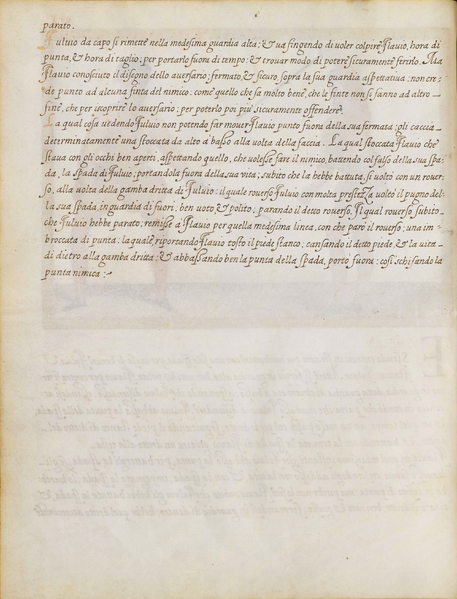 parato.
Fuluio da capo si rimette nella medesima guardia alta; & ua fingendo di uoler colpire Flauio, hora di
punta, & hora di taglio; per portarlo fuori di tempo; & trouar modo di potere sicuramente ferirlo. Ma
Flauio conosciuto il disegno dello auersario; fermato, & sicuro, sopra la sua guardia aspettatiua; non cre-
de punto ad alcuna finta del nimico: come quello che sa molto bene, che le finte non si fanno ad altro
fine, che per iscoprire lo auersario; per poterlo poi piu sicuramente offendere.
La qual cosa uedendo Fuluio non potendo far mouer Flauio punto fuori della sua fermata; gli caccia
determinatamente una stoccata da alto a basso alla uolta della faccia. La qual stoccata Flauio che
staua con gli occhi ben aperti, aspettando quello, che uolesse fare il nimico, battendo col falso della sua spa-
da, la spada di Fuluio; portandola fuora della sua uita; subito che la hebbe battuta, si uoltò con un rouer-
so, alla uolta della gamba dritta di Fuluio: il quale rouerso Fuluio con molta prestezza uoltò il pugno del-
la sua spada, in guardia di fuori, ben uoto & polito; parando il detto rouerso. Il qual rouerso subito
che Fuluio hebbe parato; remisse a Flauio per quella medesima linea, con che parò il rouerso; una im-
broccata di punta: la quale, riportando Flauio tosto il piede stanco; cansando il detto piede, & la uita
di dietro alla gamba dritta; & abbassando ben la punta della spada, portò fuori: cosi schifando la
punta nimica: